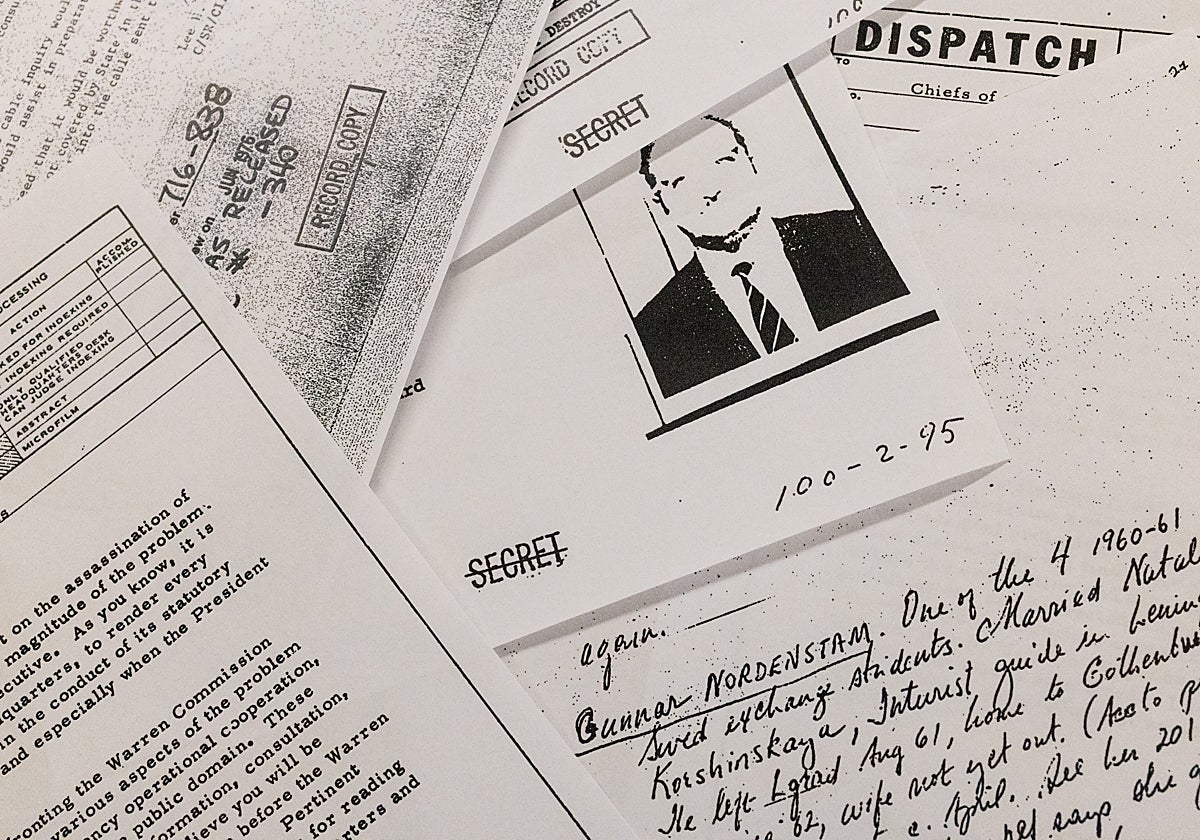 cable inquiry would
would assist in preparat
eed that it would be worthw
ot covered by State in t
into the cable sent t
Lee H.
C/SR/CI
716-838
ew on JUN 1976
AS RELEASED
# -340
RECORD COPY
DESTROY
RECORD COPY
100
SECRET
DISPATCH
TO
Chiefs of
24
rd
100-2-95
SECRET
OCESSING
ACTION
ACCOM-
PLISHED
KED FOR INDEXING
INDEXING REQUIRED
ONLY QUALIFIED
HEADQUARTERS DESK
CAN JUDGE INDEXING
ABSTRACT
MICROFILM
t on the assassination of
magnitude of the problem.
ecutive. As you know, it is
quarters, to render every
in the conduct of its statutory
and especially when the President
fronting the Warren Commission
various aspects of the problem
ncy operational cooperation,
public domain. These
formation, consultation,
lieve you will be
before the Warren
Pertinent
for reading
rters and
again.
Gunnar NORDENSTAM. One of the 4 1960-61
Swed exchange students. Married Natal
Korshinskaya, Inturist guide in Lening
He left Lgrad Aug 61, home to Gothenbu
62, wife not yet out. (Accto
c. April. See her 201
says she